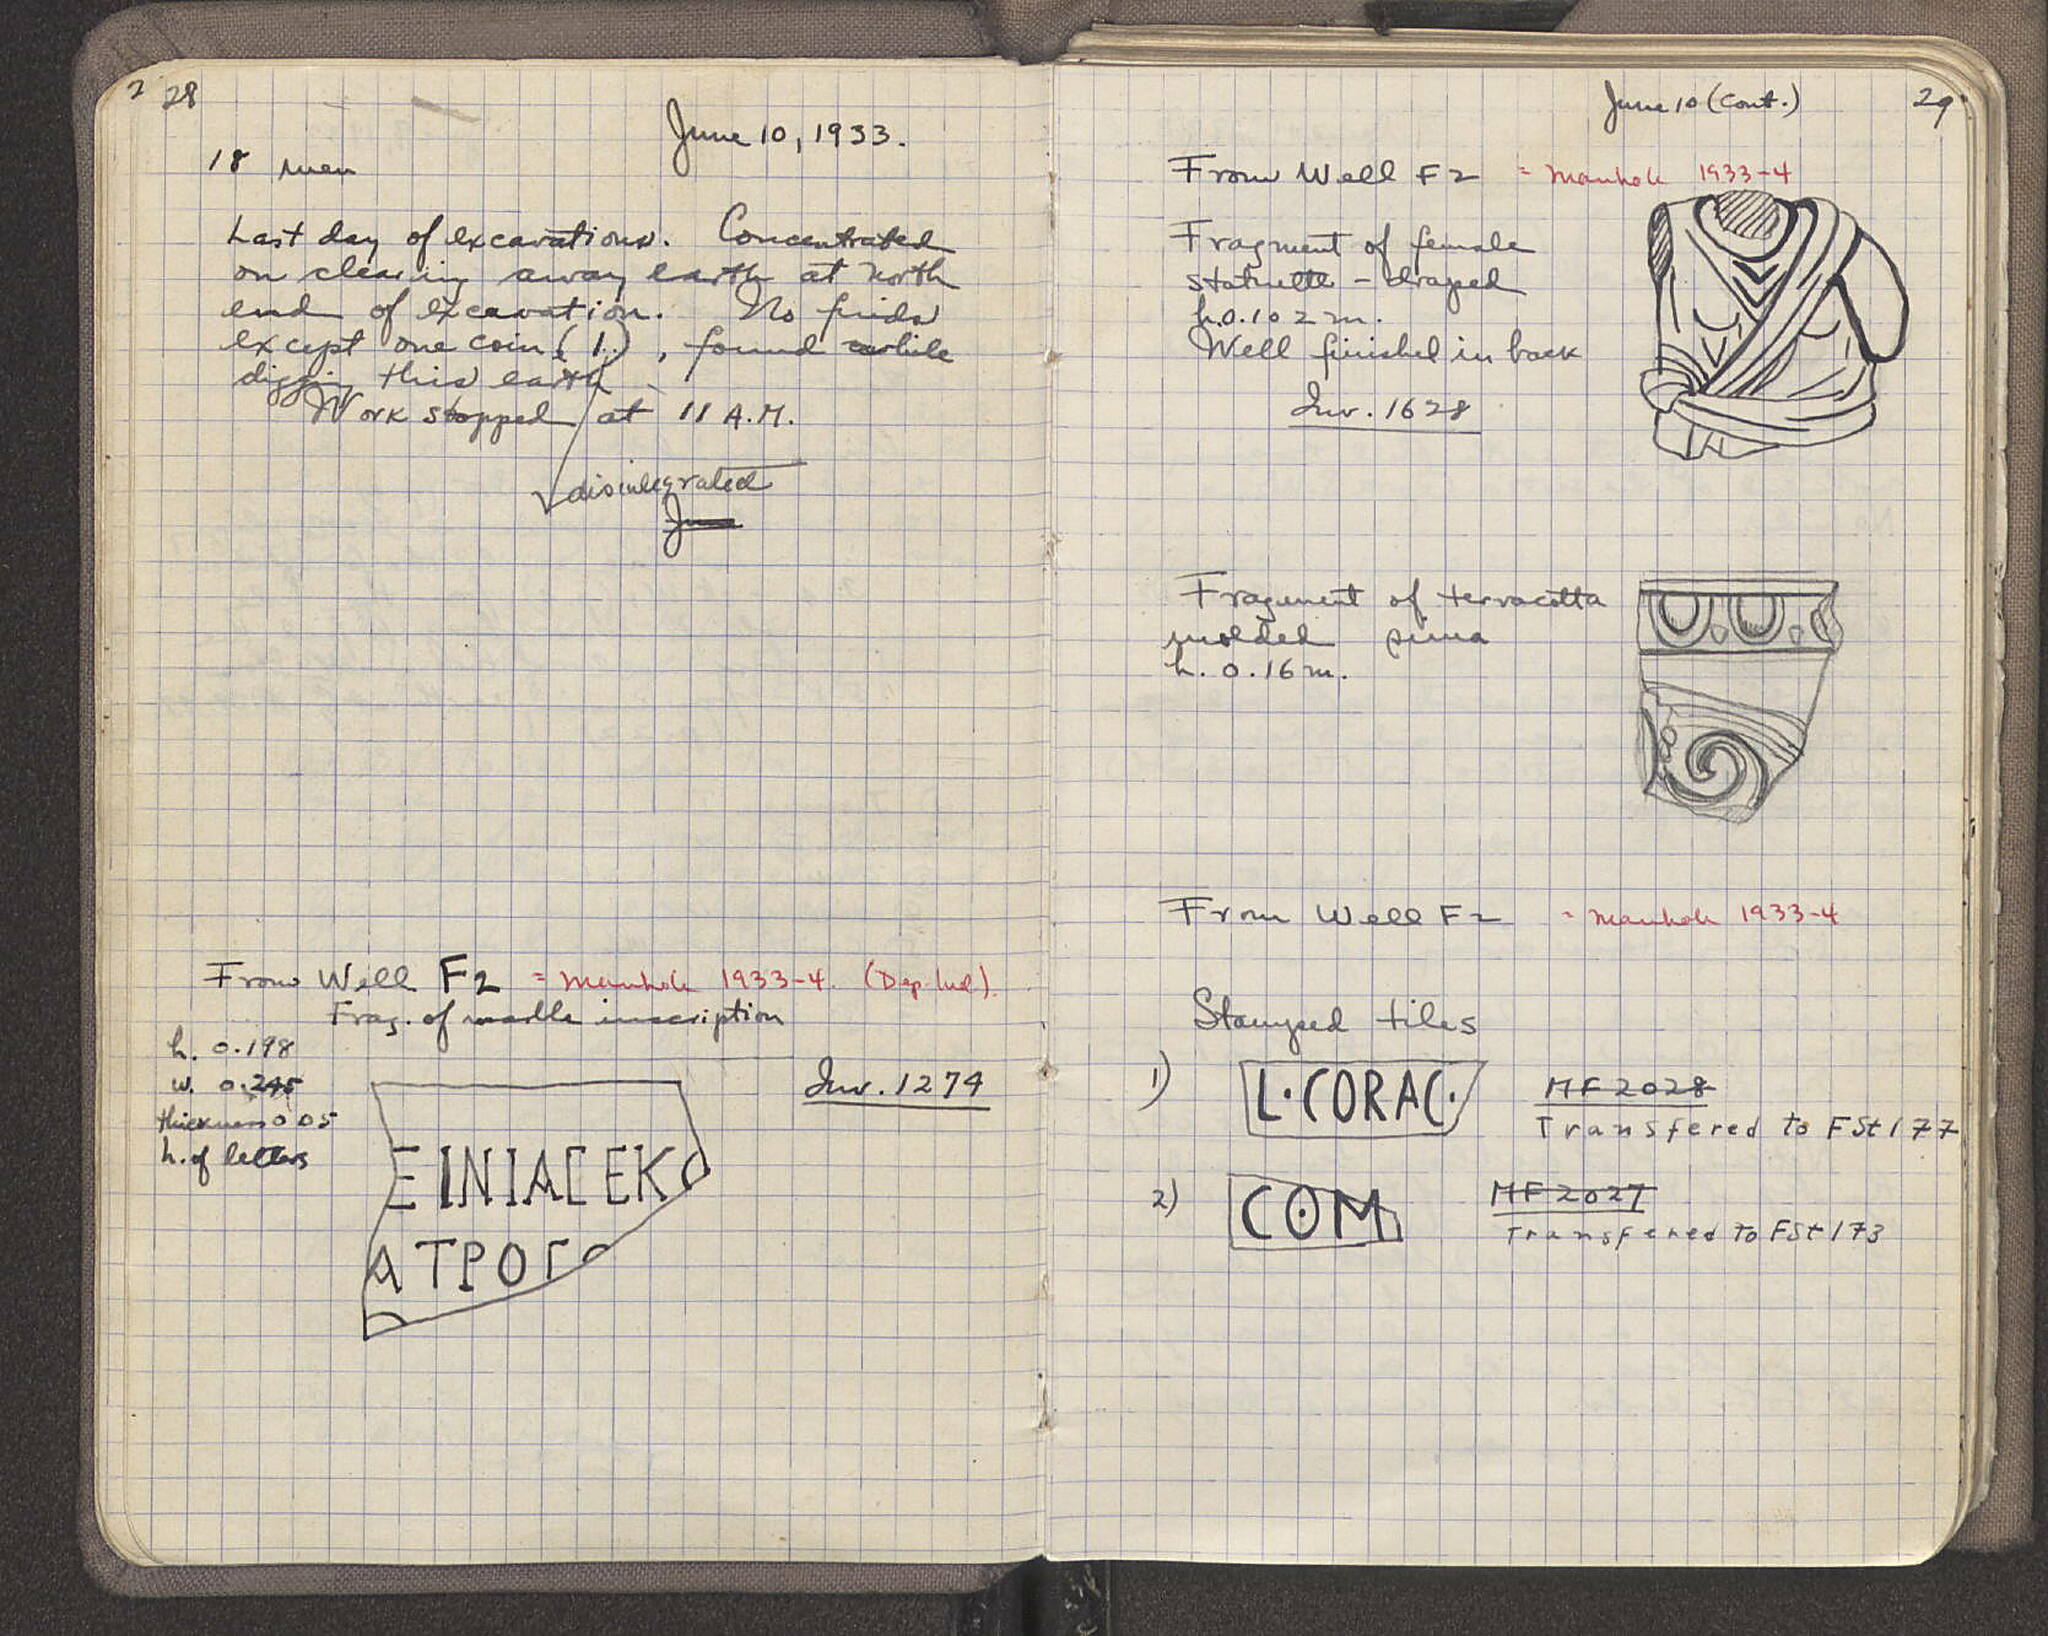 2 28
June 10, 1933.
18 men
Last day of excavations. Concentrated
on clearing away earth at north
end of excavation. No finds
except one coin (1.), found while
digging this earth.
Work stopped at 11 A.M.
disintegrated
June
From Well F2 = Manhole 1933-4. (Dep. Ind.)
Frag. of marble inscription
h. 0.198
w. 0.245
thickness 0.05
h. of letters
Inv. 1274
ΕΙΝΙΑΣΕΚΟ
ΑΤΡΟΓΟ
June 10 (Cont.) 29
From Well F2 = Manhole 1933-4
Fragment of female
statuette - draped
h. 0.102 m.
Well finished in back
Inv. 1628
Fragment of terracotta
molded sima
h. 0.16 m.
From Well F2 = Manhole 1933-4
Stamped tiles
1) L·CORAC· MF 2028
Transfered to FSt 177
2) COM MF 2027
Transfered to FSt 173